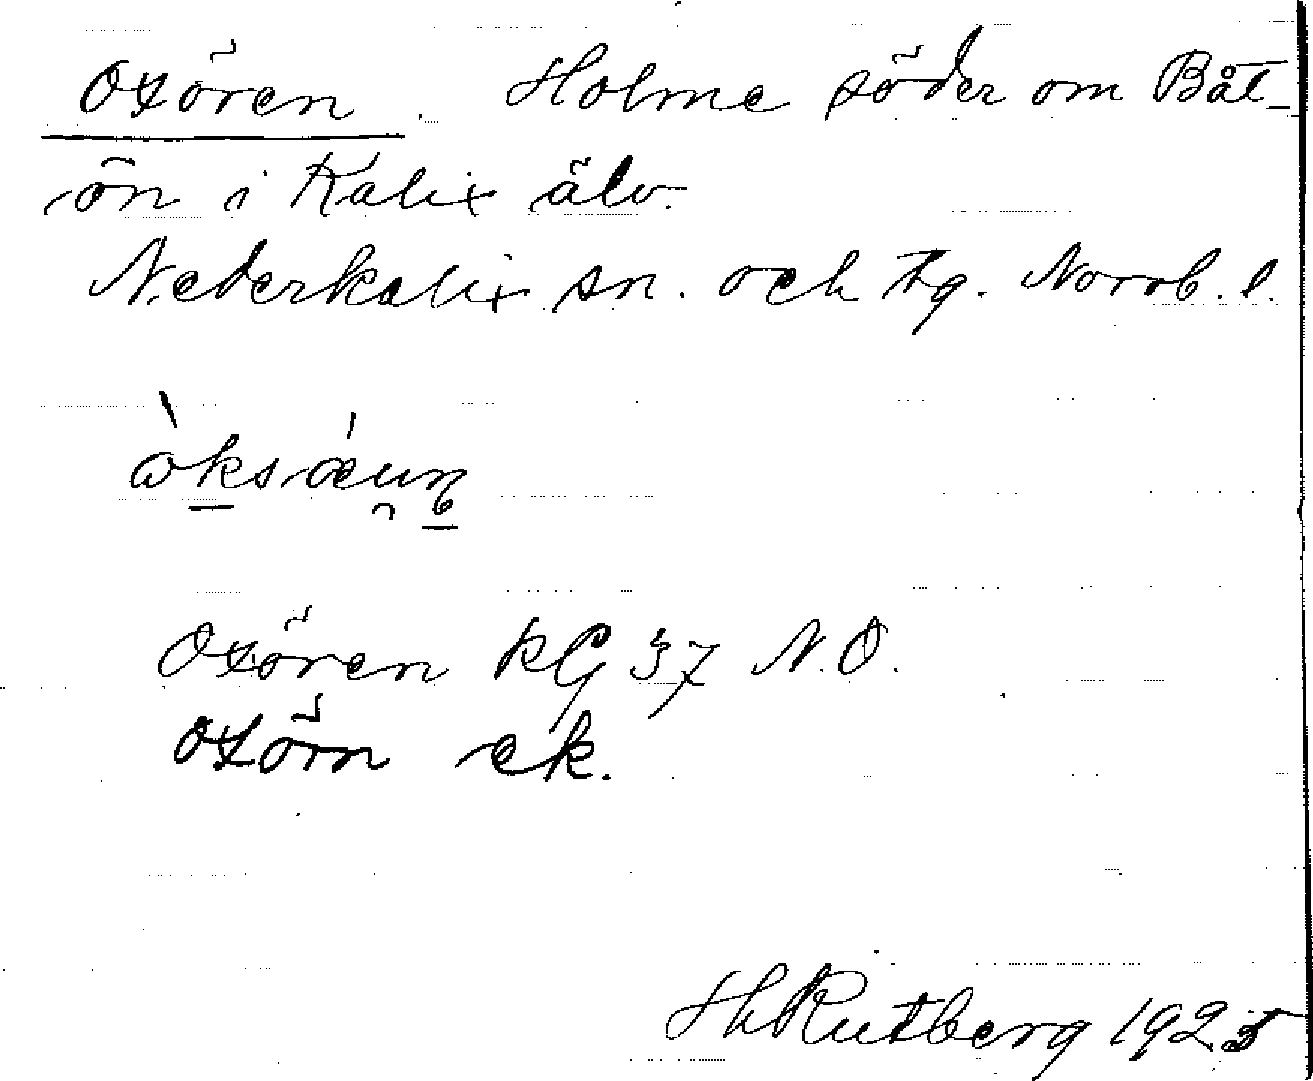 Oxören Holme söder om Båt-
ön i Kalix älv.
Nederkalix sn. och tg. Norrb. l.
Oxören kG 37 N.O.
Oxörn ek.
HRutberg 1925